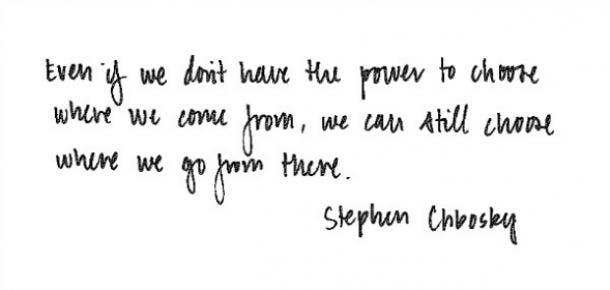 Even if we don't have the power to choose
where we come from, we can still choose
where we go from there.
Stephen Chbosky